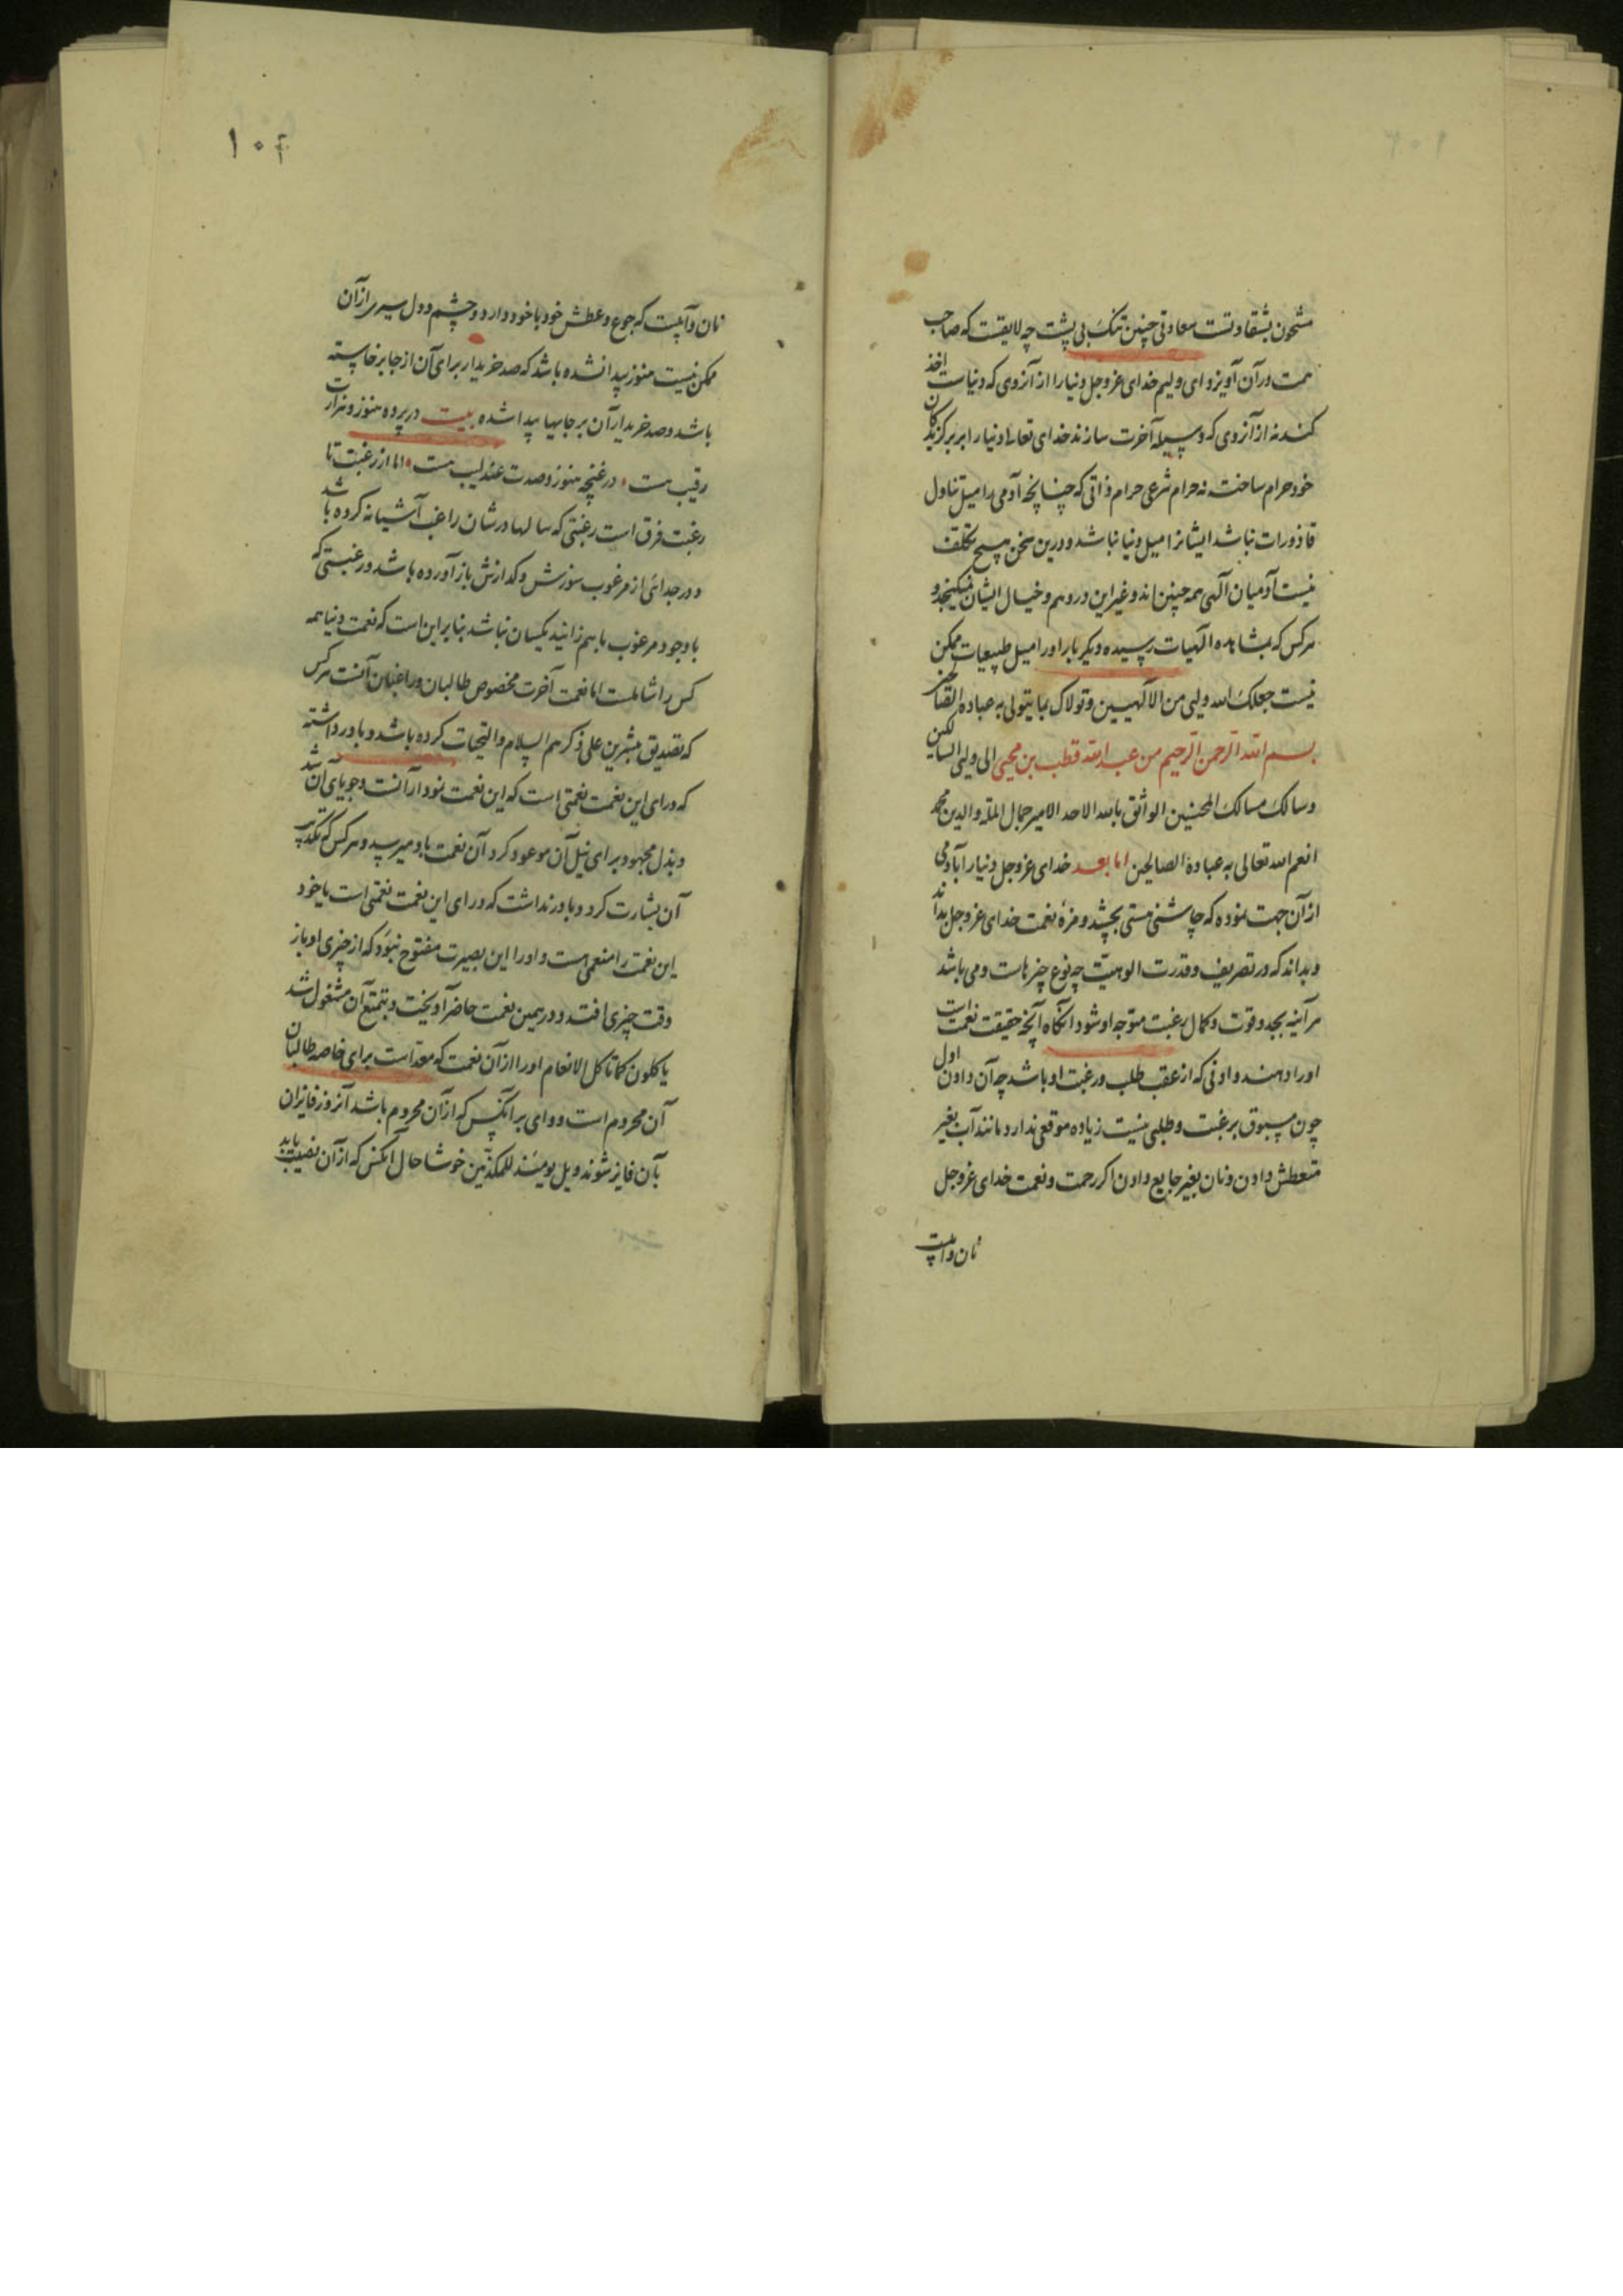 مشحون بشقاوتست سعادتی چنین تنک بی پشت چه لایقست که صاحب
همت در آن آویزد ای ولیم خدای عزوجل دنیا را از آنروی که دنیاست اخذ
کنند نه از آنروی که وسیله آخرت سازند خدای تعالی دنیا را بر برگزیدکان
خود حرام ساخت نه حرام شرعی حرام ذاتی که چنانچه آدمی را میل تناول
قاذورات نباشد ایشانرا میل دنیا نباشد و درین سخن هیچ تکلف
نیست آدمیان آلهی همه چنین اند و غیر این در وهم و خیال ایشان نمیکنجد و
هرکس که بمشاهده الهیات رسیده دیکر بار او را میل طبیعیات ممکن
نیست جعلک الله ولیی من الالهیین و تولاک بما یتولی به عباده الصالحین
بسم الله الرحمن الرحیم من عبدالله قطب بن محیی الی ولیی السالکین
و سالک مسالک المحسنین الواثق بالله الاحد الامیر جمال المله والدین محمد
انعم الله تعالی به عباده الصالحین اما بعد خدای عزوجل دنیا را آباد می
از آن جهت نموده که چاشنی هستی بچشد و مزهٔ نعمت خدای عزوجل بداند
و بداند که در تصریف و قدرت الوهیت چه نوع چیزهاست و می باشد
هرآینه بجد و قوت و کمال رغبت متوجه او شود انکاه آنچه حقیقت نعمت است
او را دهند دادنی که از عقب طلب و رغبت او باشد چه آن دادن اول
چون مسبوق برغبت و طلبی نیست زیاده موقعی ندارد مانند آب بغیر
متعطش دادن و نان بغیر جایع دادن اکر رحمت و نعمت خدای عزوجل
نان و آبیست
۱۰۴
نان و آبیست که جوع و عطش خود با خود دارد و چشم و دل سیری از آن
ممکن نیست هنوز پیدا نشده باشد که صد خریدار برای آن از جا برخاسته
باشد و صد خریدار آن بر جابها پیدا شده بیت در پرده هنوز و هزارت
رقیب هست در غنچه هنوز و صدت عندلیب هست اما از رغبت تا
رغبت فرق است رغبتی که سالها در شان راغب آشیانه کرده باشد
و در جدائی از مرغوب سوزش و کدازش باز آورده باشد و رغبتی که
با وجود مرغوب با هم زائید یکسان نباشد بنابراین است که نعمت دنیا همه
کس را شاملست اما نعمت آخرت مخصوص طالبان و راغبان آنست هرکس
که تصدیق مبشرین علی ذکرهم السلام والتحیات کرده باشد و باور داشته
که ورای این نعمت نعمتی است که این نعمت نودار آنست و جویای آن شد
و بذل مجهود برای نیل آن موعود کرد آن نعمت باو میرسد و هرکس که تکذیب
آن بشارت کرد و باور نداشت که ورای این نعمت نعمتی است یا خود
این نعمت را منعمی هست و او را این بصیرت مفتوح نبود که از چیزی او باز
وقت چیزی افتد و در همین نعمت حاضر آویخت و بتمتع آن مشغول شد
یاکلون کما تاکل الانعام او را از آن نعمت که معد است برای خاصه طالبان
آن محروم است و وای بر آنکس که از آن محروم باشد آنروز فایزان
بآن فایز شوند ویل یومئذ للمکذبین خوشا حال آنکس که از آن نصیب یابد